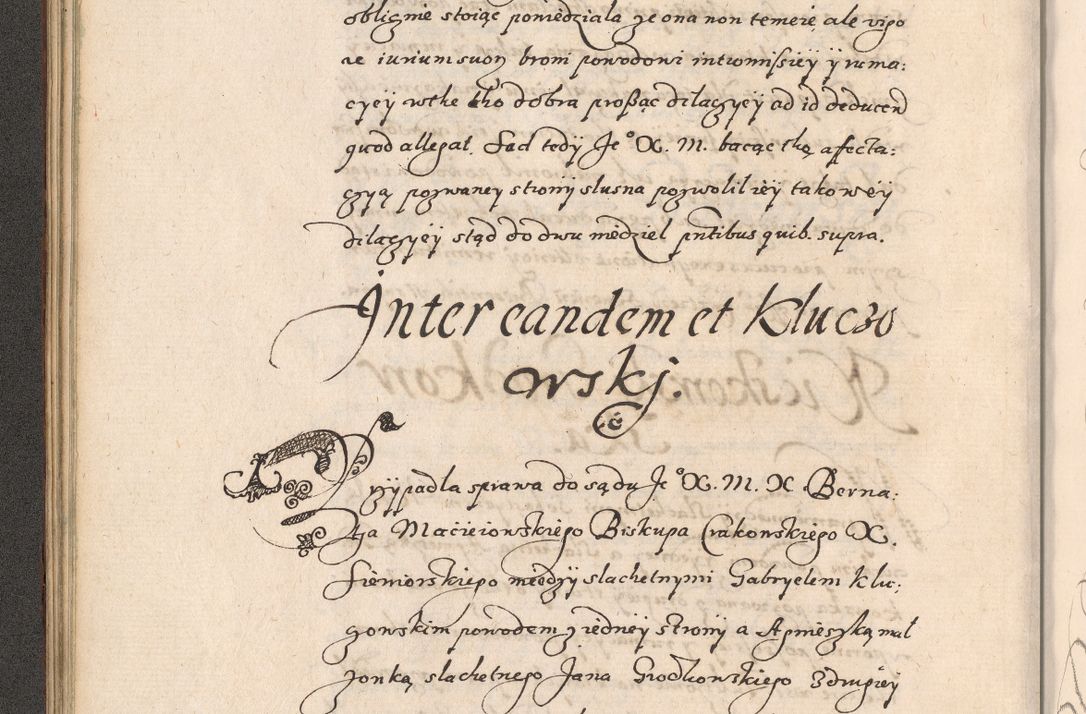 oblignie stoiąc powiedziala ze ona non temere ale vigo
re iurium suor broni powodowi intromissiey y ruma:
cyey wthe tho dobra proßąc dilacyey ad id deducend
quod allegat. Sad tedy Je° X. M. bacąc thą afecta:
czyą pozwaney strony slusną pozwolil iey takowey
dilaczyey stąd do dwu niedziel pntibus quib. supra.
Inter eandem et Kluczo
wskj.
Przypadla sprawa do sądu Je° X. M. X Berna:
ta Macieiowskiego Biskupa Crakowskiego X.
Siewiorskiego miedzy slachetnymi Gabryelem Klu:
zowskim powodem z iedney strony a Agnieszką mal
zonką slachetnego Jana Grodkowskiego z drugiey